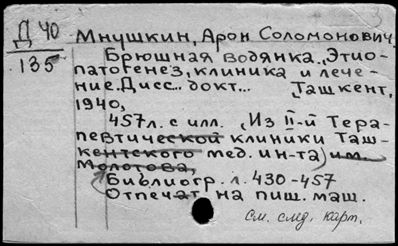 Д 40
135
Мнушкин, Арон Соломонович.
Брюшная водянка. Этио-
патогенез, клиника и лече-
ние. Дисс... докт... Ташкент,
1940,
457л. с илл. (Из II-й Тера-
певтической клиники Таш-
кентского мед. ин-та) им.
Молотова,
Библиогр. л. 430-457
Отпечат на пиш. маш.
См. след. карт.